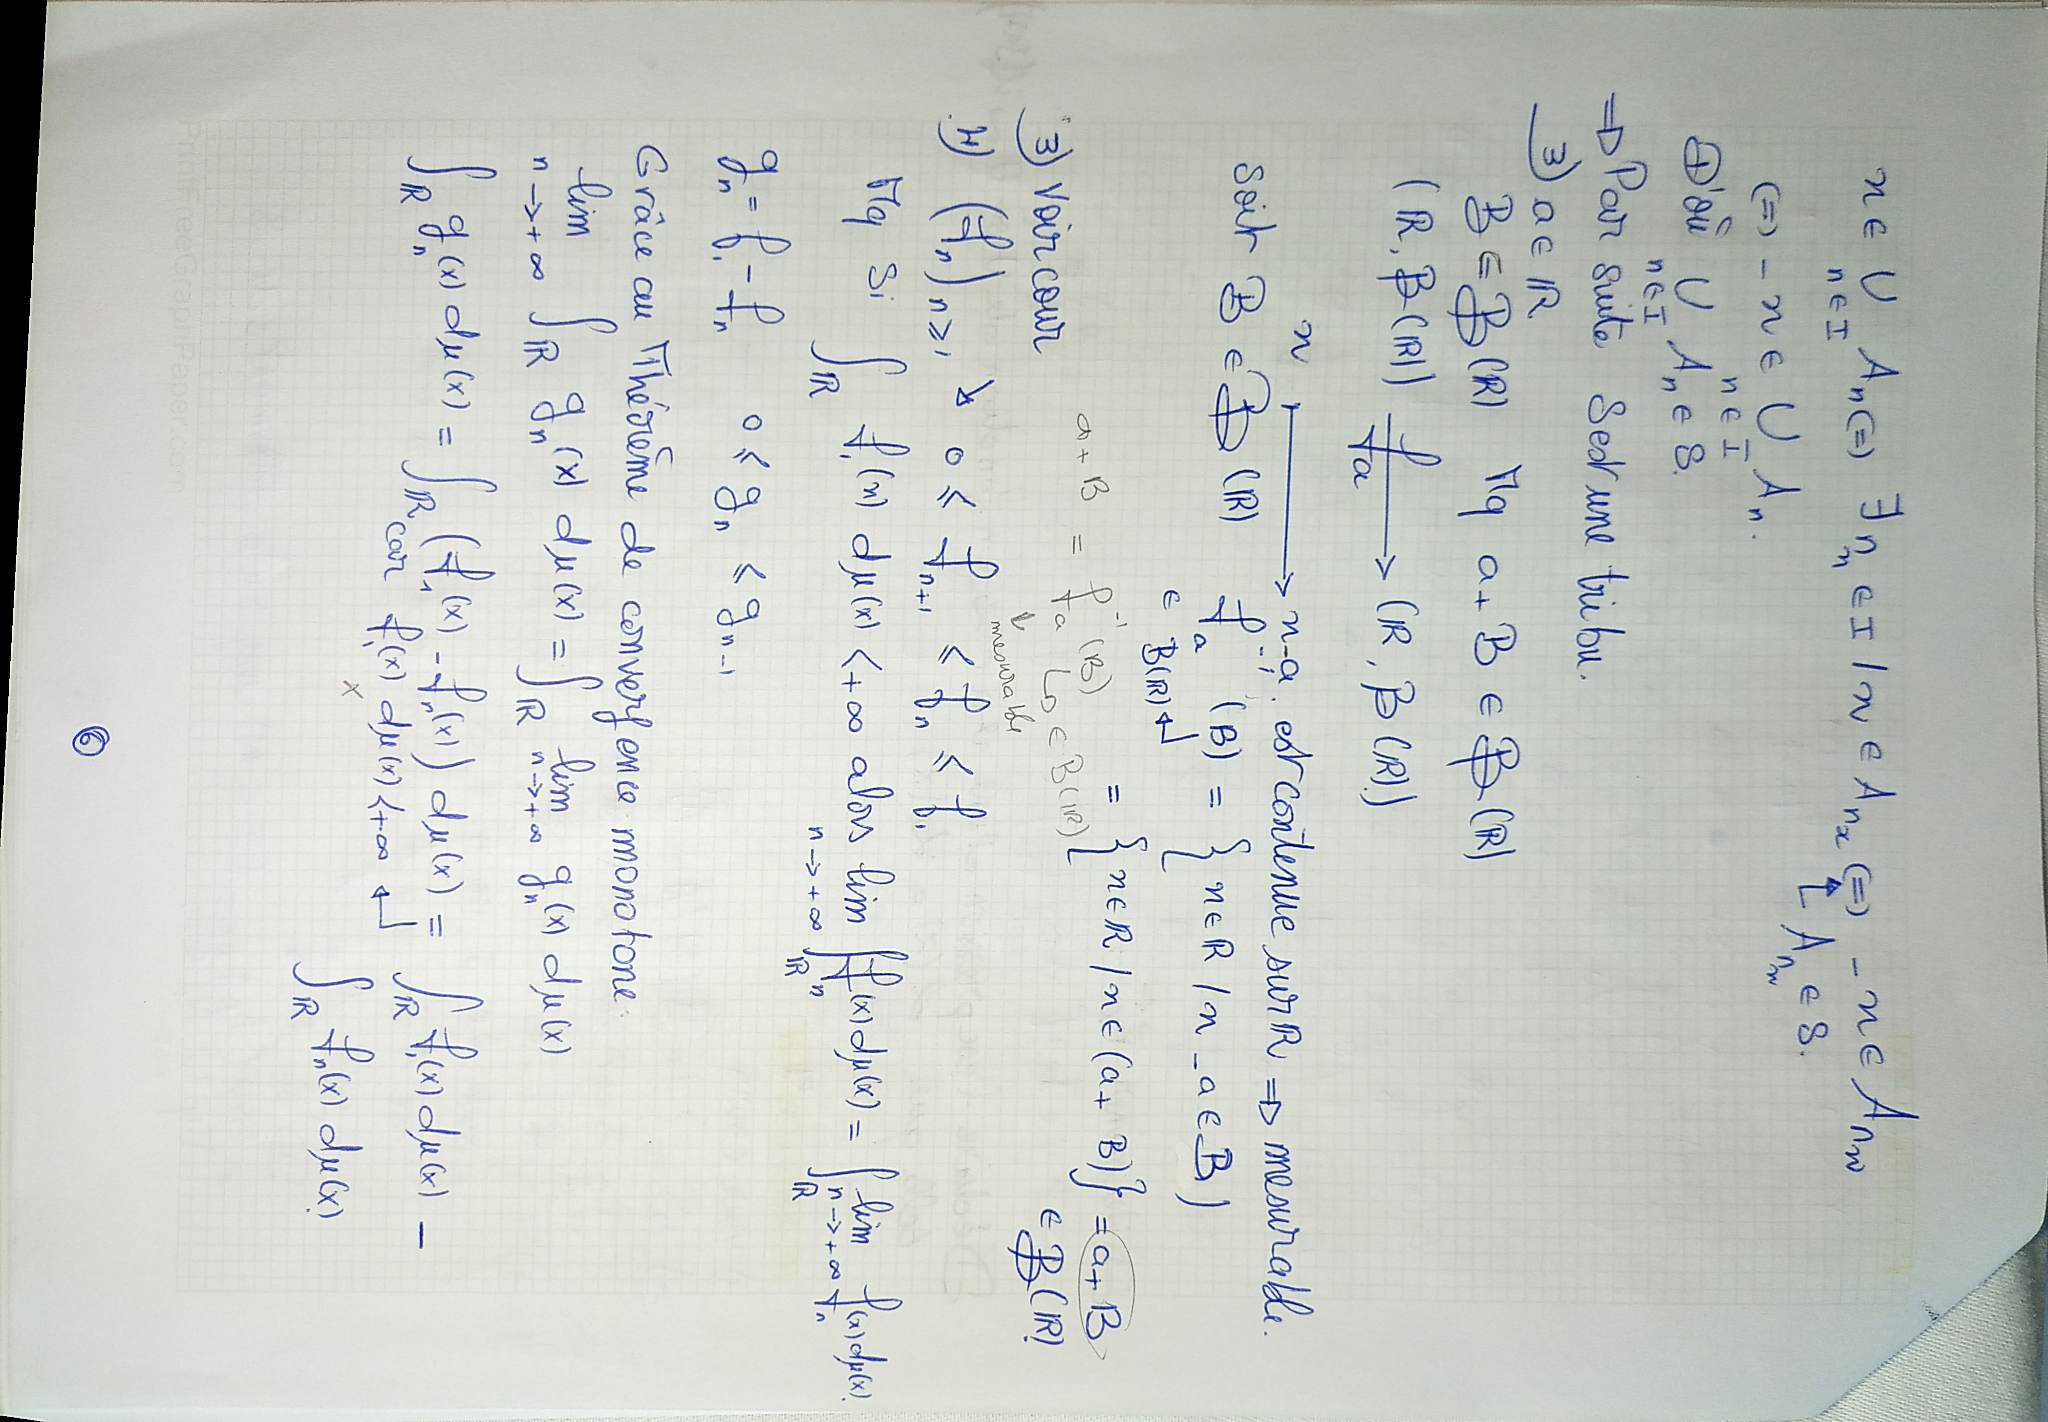 x ∈ ∪ A_n (=) ∃ n_x ∈ I / x ∈ A_{n_x} (=) - x ∈ A_{n_x}
n ∈ I
A_{n_x} ∈ S.
(=) - x ∈ ∪ A_n.
n ∈ I
D'où ∪ A_n ∈ S.
n ∈ I
=> Par suite S est une tribu.
3) a ∈ ℝ
B ∈ B(ℝ) Mq a + B ∈ B(ℝ)
(ℝ, B(ℝ)) f_a → (ℝ, B(ℝ).)
x ↦ x - a. est contenue sur ℝ => mesurable.
soit B ∈ B(ℝ) f_a^{-1}(B) = { x ∈ ℝ / x - a ∈ B)
∈ B(ℝ) ↵
= { x ∈ ℝ / x ∈ (a + B)} = a + B
a + B = f_a^{-1}(B)
↳ ∈ B(ℝ)
∈ B(ℝ)
3) Voir cour
↓ mesurable
4) (f_n)_{n≥1} ↘ 0 ≤ f_{n+1} ≤ f_n ≤ f_1
Mq Si ∫_ℝ f_1(x) dμ(x) < +∞ alors lim_{n→+∞} ∫_ℝ f_n(x) dμ(x) = ∫_ℝ lim_{n→+∞} f_n(x) dμ(x).
g_n = f_1 - f_n 0 ≤ g_n ≤ g_{n-1}
Grâce au Théorème de convergence monotone.
lim_{n→+∞} ∫_ℝ g_n(x) dμ(x) = ∫_ℝ lim_{n→+∞} g_n(x) dμ(x)
∫_ℝ g_n(x) dμ(x) = ∫_ℝ (f_1(x) - f_n(x)) dμ(x) = ∫_ℝ f_1(x) dμ(x) -
car f_1(x) dμ(x) < +∞ ↵
x
∫_ℝ f_n(x) dμ(x).
PrintFreeGraphPaper.com
6